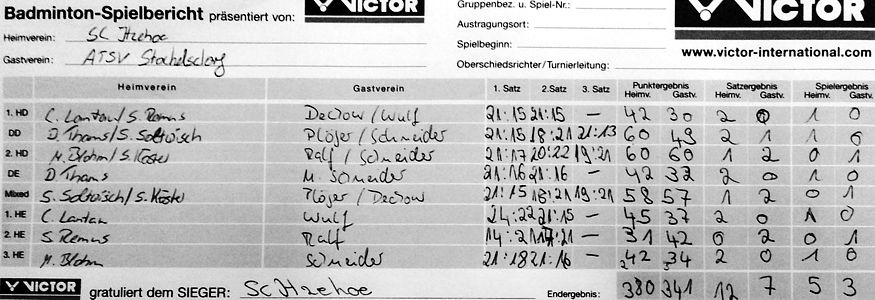 Badminton-Spielbericht präsentiert von: VICTOR
Gruppenbez. u. Spiel-Nr.:
VICTOR
Heimverein: SC Itzehoe
Austragungsort:
Gastverein: ATSV Stockelsdorf
Spielbeginn:
www.victor-international.com
Oberschiedsrichter/Turnierleitung:
Heimverein Gastverein 1. Satz 2. Satz 3. Satz Punktergebnis Heimv. Gastv. Satzergebnis Heimv. Gastv. Spielergebnis Heimv. Gastv.
1. HD C. Lantau/S. Remus Decrow/Wulf 21:15 21:15 – 42 30 2 0 1 0
DD D. Thams/S. Soltwisch Plöjer/Schneider 21:15 18:21 21:13 60 49 2 1 1 0
2. HD M. Blohm/S. Köster Ralf/Schneider 21:17 20:22 19:21 60 60 1 2 0 1
DE D. Thams M. Schneider 21:16 21:16 – 42 32 2 0 1 0
Mixed S. Soltwisch/S. Köster Plöjer/Decrow 21:15 18:21 19:21 58 57 1 2 0 1
1. HE C. Lantau Wulf 24:22 21:15 – 45 37 2 0 1 0
2. HE S. Remus Ralf 14:21 17:21 – 31 42 0 2 0 1
3. HE M. Blohm Schneider 21:18 21:16 – 42 34 2 0 1 0
VICTOR gratuliert dem SIEGER: SC Itzehoe Endergebnis: 380 341 12 7 5 3